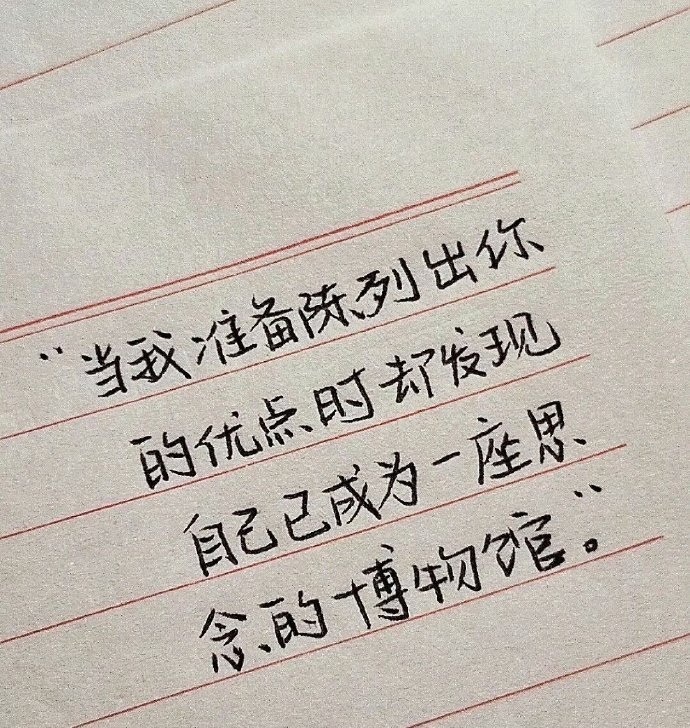 “当我准备陈列出你
的优点时却发现
自己已成为一座思
念的博物馆”。